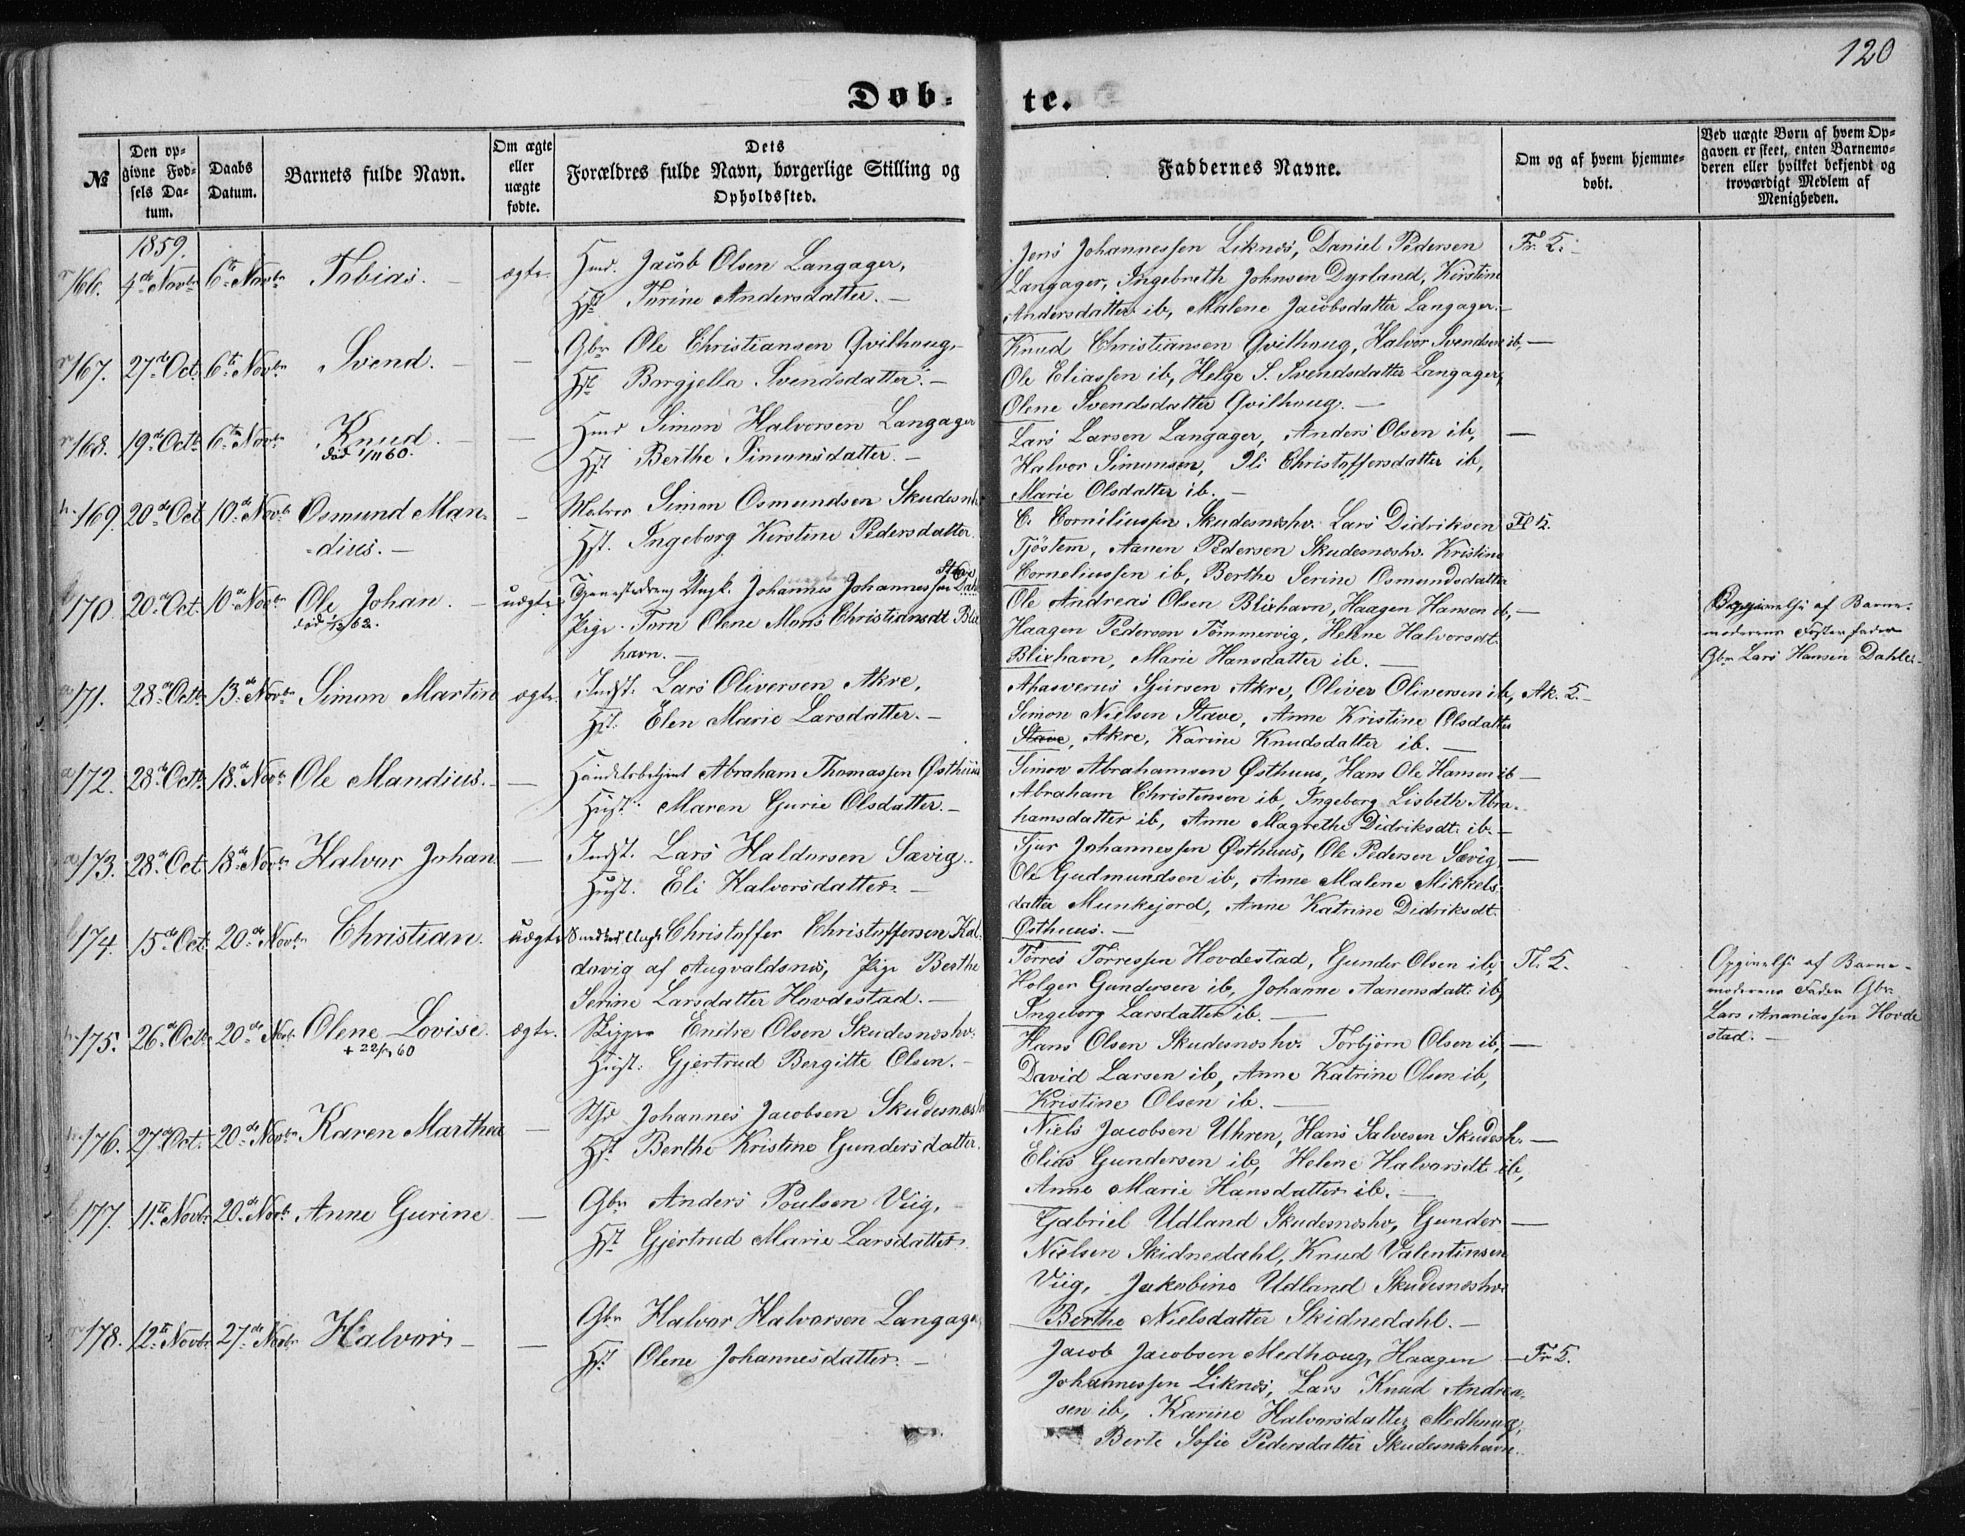 120
Döb-
te.
№
Den op-
givne Föd-
sels Da-
tum.
Daabs
Datum.
Barnets fulde Navn.
Om ægte
eller
uægte
födte.
Dets
Forældres fulde Navn, borgerlige Stilling og
Opholdssted.
Faddernes Navne.
Om og af hvem hjemme-
döbt.
Ved uægte Börn af hvem Op-
gaven er skeet, enten Barnemo-
deren eller hvilket bekjendt og
troværdigt Medlem af
Menigheden.
1859.
166. 4de Novbr 6te Novbr Tobias. – ægte. Hmd. Jacob Olsen Langager,
Hst Turine Andersdatter. –
Jens Johannessen Liknes, Daniel Pedersen Fr. 5.
Langager, Ingebreth Johnsen Dyrland, Kirstine
Andersdatter ib, Malene Jacobsdatter Langager. –
167. 27de Oct. 6te Novbr Svend. – – Gbr Ole Christiansen Qvilhoug, –
Hst Borgjella Svendsdatter. –
Knud Christiansen Qvilhoug, Halvor Svendsen ib, –
Ole Eliassen ib, Helge S. Svendsdatter Langager,
Olene Svendsdatter Qvilhoug. –
168. 19de Octb. 6te Novbr Knud. – – Hmd Simon Halvorsen Langager
död 1/11 60.
Hst Berthe Simonsdatter. –
Lars Larsen Langager, Anders Olsen ib, –
Halvor Simonsen, Ili Christoffersdatter ib,
Marie Olsdatter ib. –
169. 20de Oct 10de Novbr Osmund Man- – Simon Osmundsen Skudesnh.
=dius. –
Hst. Ingeborg Kirstine Pedersdatter
C. Corniliussen Skudesneshv. Lars Didriksen Fl 5.
Tjöstem, Aanen Pedersen Skudesneshv. Kristine
Corneliussen ib, Berthe Serine Osmundsdatter
170. 20de Oct. 10de Novbr Ole Johan. – uægte Tjenestedreng Ungk. Johannes Johannessen
död 12/62.
Pige Turn Olene Mons Christiansdt Blix
havn. –
Ole Andreas Olsen Blixhavn, Haagen Hansen ib, –
Haagen Pedersen Tömmervig, Helene Halvorsdt.
Blixhavn, Marie Hansdatter ib. –
Opgivelse af Barne-
moderens Fosterfader
Gbr Lars Hansen Dahle. –
171. 28de Octb. 13de Novbr Simon Martin ægte. Indst. Lars Oliversen Akre,
Hst. Elen Marie Larsdatter. –
Ahasverus Sjursen Akre, Oliver Oliversen ib, Ak. 5. –
Simon Nielsen Stave, Anne Kristine Olsdatter
Stave, Akre, Karine Knudsdatter ib. –
172. 28de Octb. 18de Novbr Ole Mandius. – – Handelsbetjent Abraham Thomassen Östhuus
Hust. Maren Gurie Olsdatter. –
Simon Abrahamsen Östhuus, Hans Ole Hansen ib –
Abraham Christensen ib, Ingeborg Lisbeth Abra-
hamsdatter ib, Anne Magrethe Didriksdt. ib. –
173. 28de Oct 18de Novbr Halvor Johan. – Indst. Lars Haldorsen Sævig.
Hust. Eli Halvorsdatter. –
Sjur Johannessen Östhuus, Ole Pedersen Sævig –
Ole Gudmundsen ib, Anne Malene Mikkels-
datter Munkejord, Anne Katrine Didriksdt.
Östhuus. –
174. 15de Oct. 20de Novbr Christian. uægte Christoffer Christoffersen Kal-
davig af Augvaldsnes, Pige Berthe
Serine Larsdatter Hovdestad. –
Torres Torressen Hovdestad, Gunder Olsen ib, Fl. 5.
Holger Gundersen ib, Johanne Aanensdatt. ib,
Ingeborg Larsdatter ib. –
Opgivelse af Barne-
moderens Fader Gbr.
Lars Ananiassen Hovde
stad. –
175. 26de Octb. 20de Novbr Olene Lovise. ægte. Skipper Endre Olsen Skudesneshv.
+ 22/7 60
Hust. Gjertrud Bergitte Olsen. –
Hans Olsen Skudesneshv. Torbjörn Olsen ib, –
David Larsen ib, Anne Katrine Olsen ib,
Kristine Olsen ib. –
176. 27de Oct. 20de Novbr Karen Marthea – Johannes Jacobsen Skudesnesh
Hst. Berthe Kristine Gundersdatter.
Niels Jacobsen Uhren, Hans Salvesen Skudesh. –
Elias Gundersen ib, Helene Halvorsdt. ib,
Anne Marie Hansdatter ib. –
177. 11te Novbr 20de Novbr Anne Gurine – Gbr Anders Poulsen Viig,
Hst Gjertrud Marie Larsdatter.
Gabriel Udland Skudesneshv, Gunder –
Nielsen Skidnedahl, Knud Valentinsen
Viig, Jakobine Udland Skudesneshv.
Berthe Nielsdatter Skidnedahl. –
178. 12te Novbr 27de Novbr Halvor – – Gbr Halvor Halvorsen Langager
Hst. Olene Johannesdatter. –
Jacob Jacobsen Medhoug, Haagen – Fr 5.
Johannessen Liknes, Lars Knud Andrea-
sen ib, Karine Halvorsdatter Medhoug,
Berte Sofie Pedersdatter Skudesneshavn.